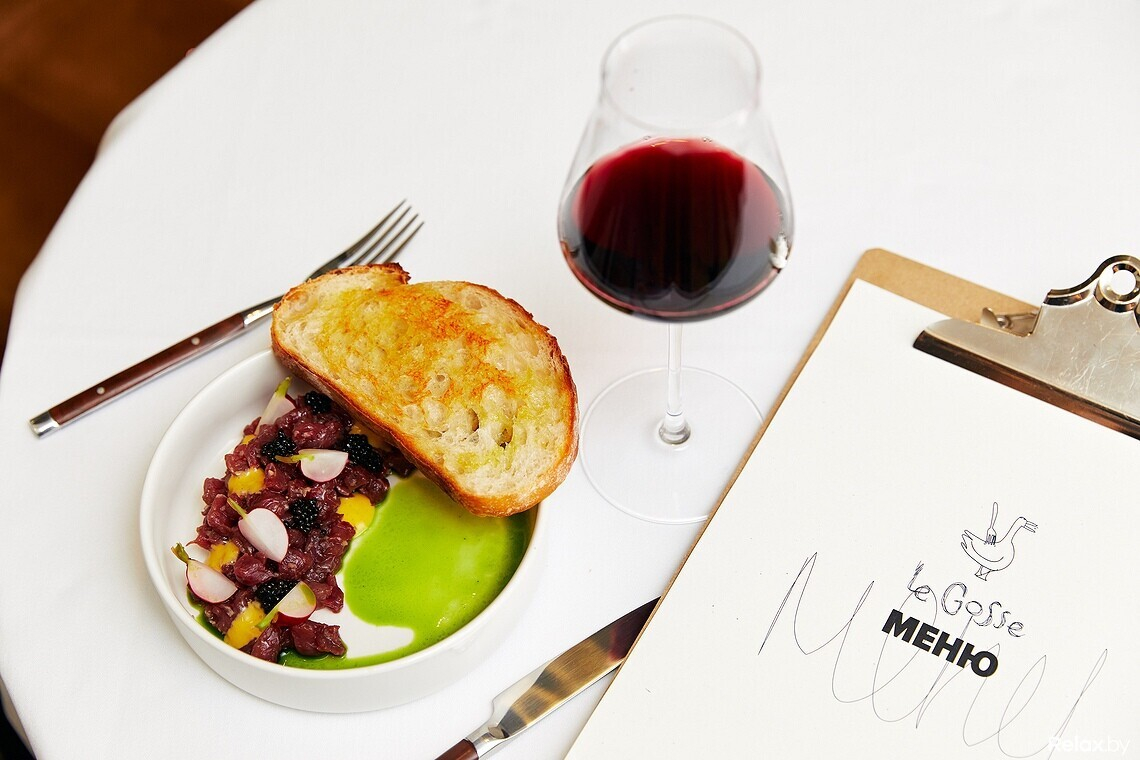 Le Gosse
МЕНЮ
Menu
Relax.by